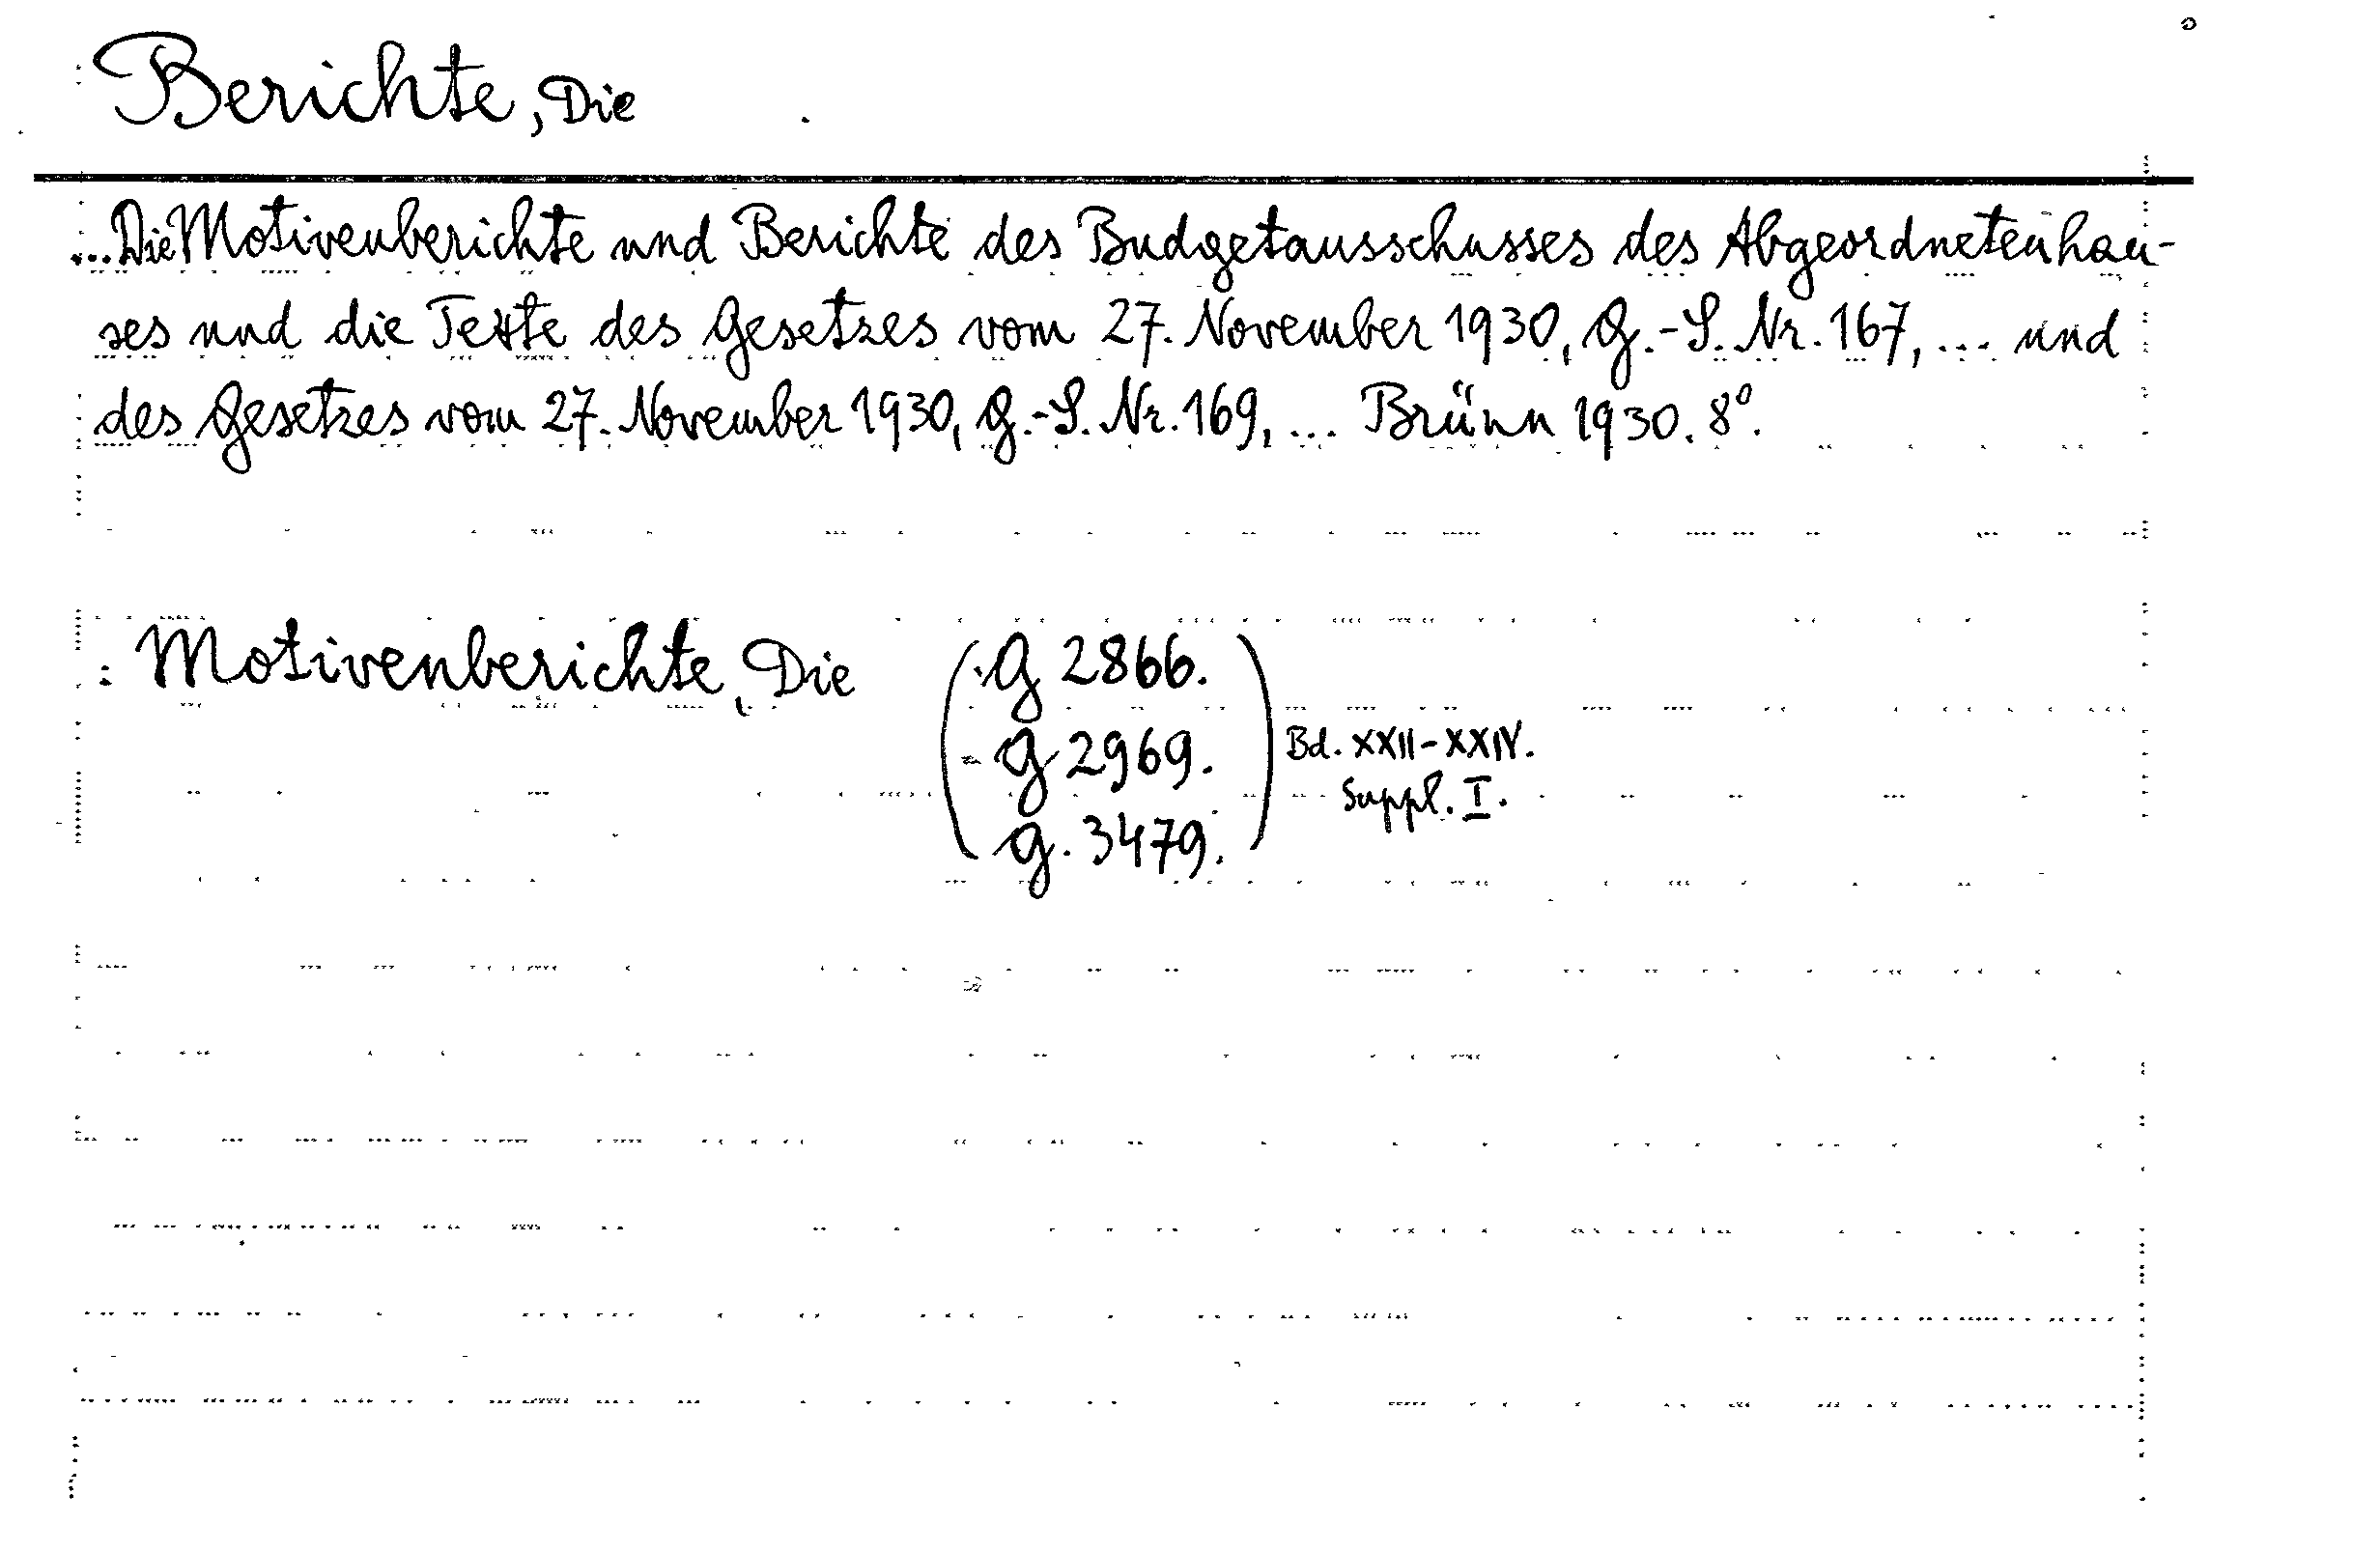 Berichte, Die
...Die Motivenberichte und Berichte des Budgetausschusses des Abgeordnetenhau-
ses und die Texte des Gesetzes vom 27. November 1930, G.-S. Nr. 167, ... und
des Gesetzes vom 27. November 1930, G.-S. Nr. 169, ... Brünn 1930. 8°.
Motivenberichte, Die
(g 2866.
g 2969.
g. 3479.)
Bd. XXII-XXIV.
Suppl. I.